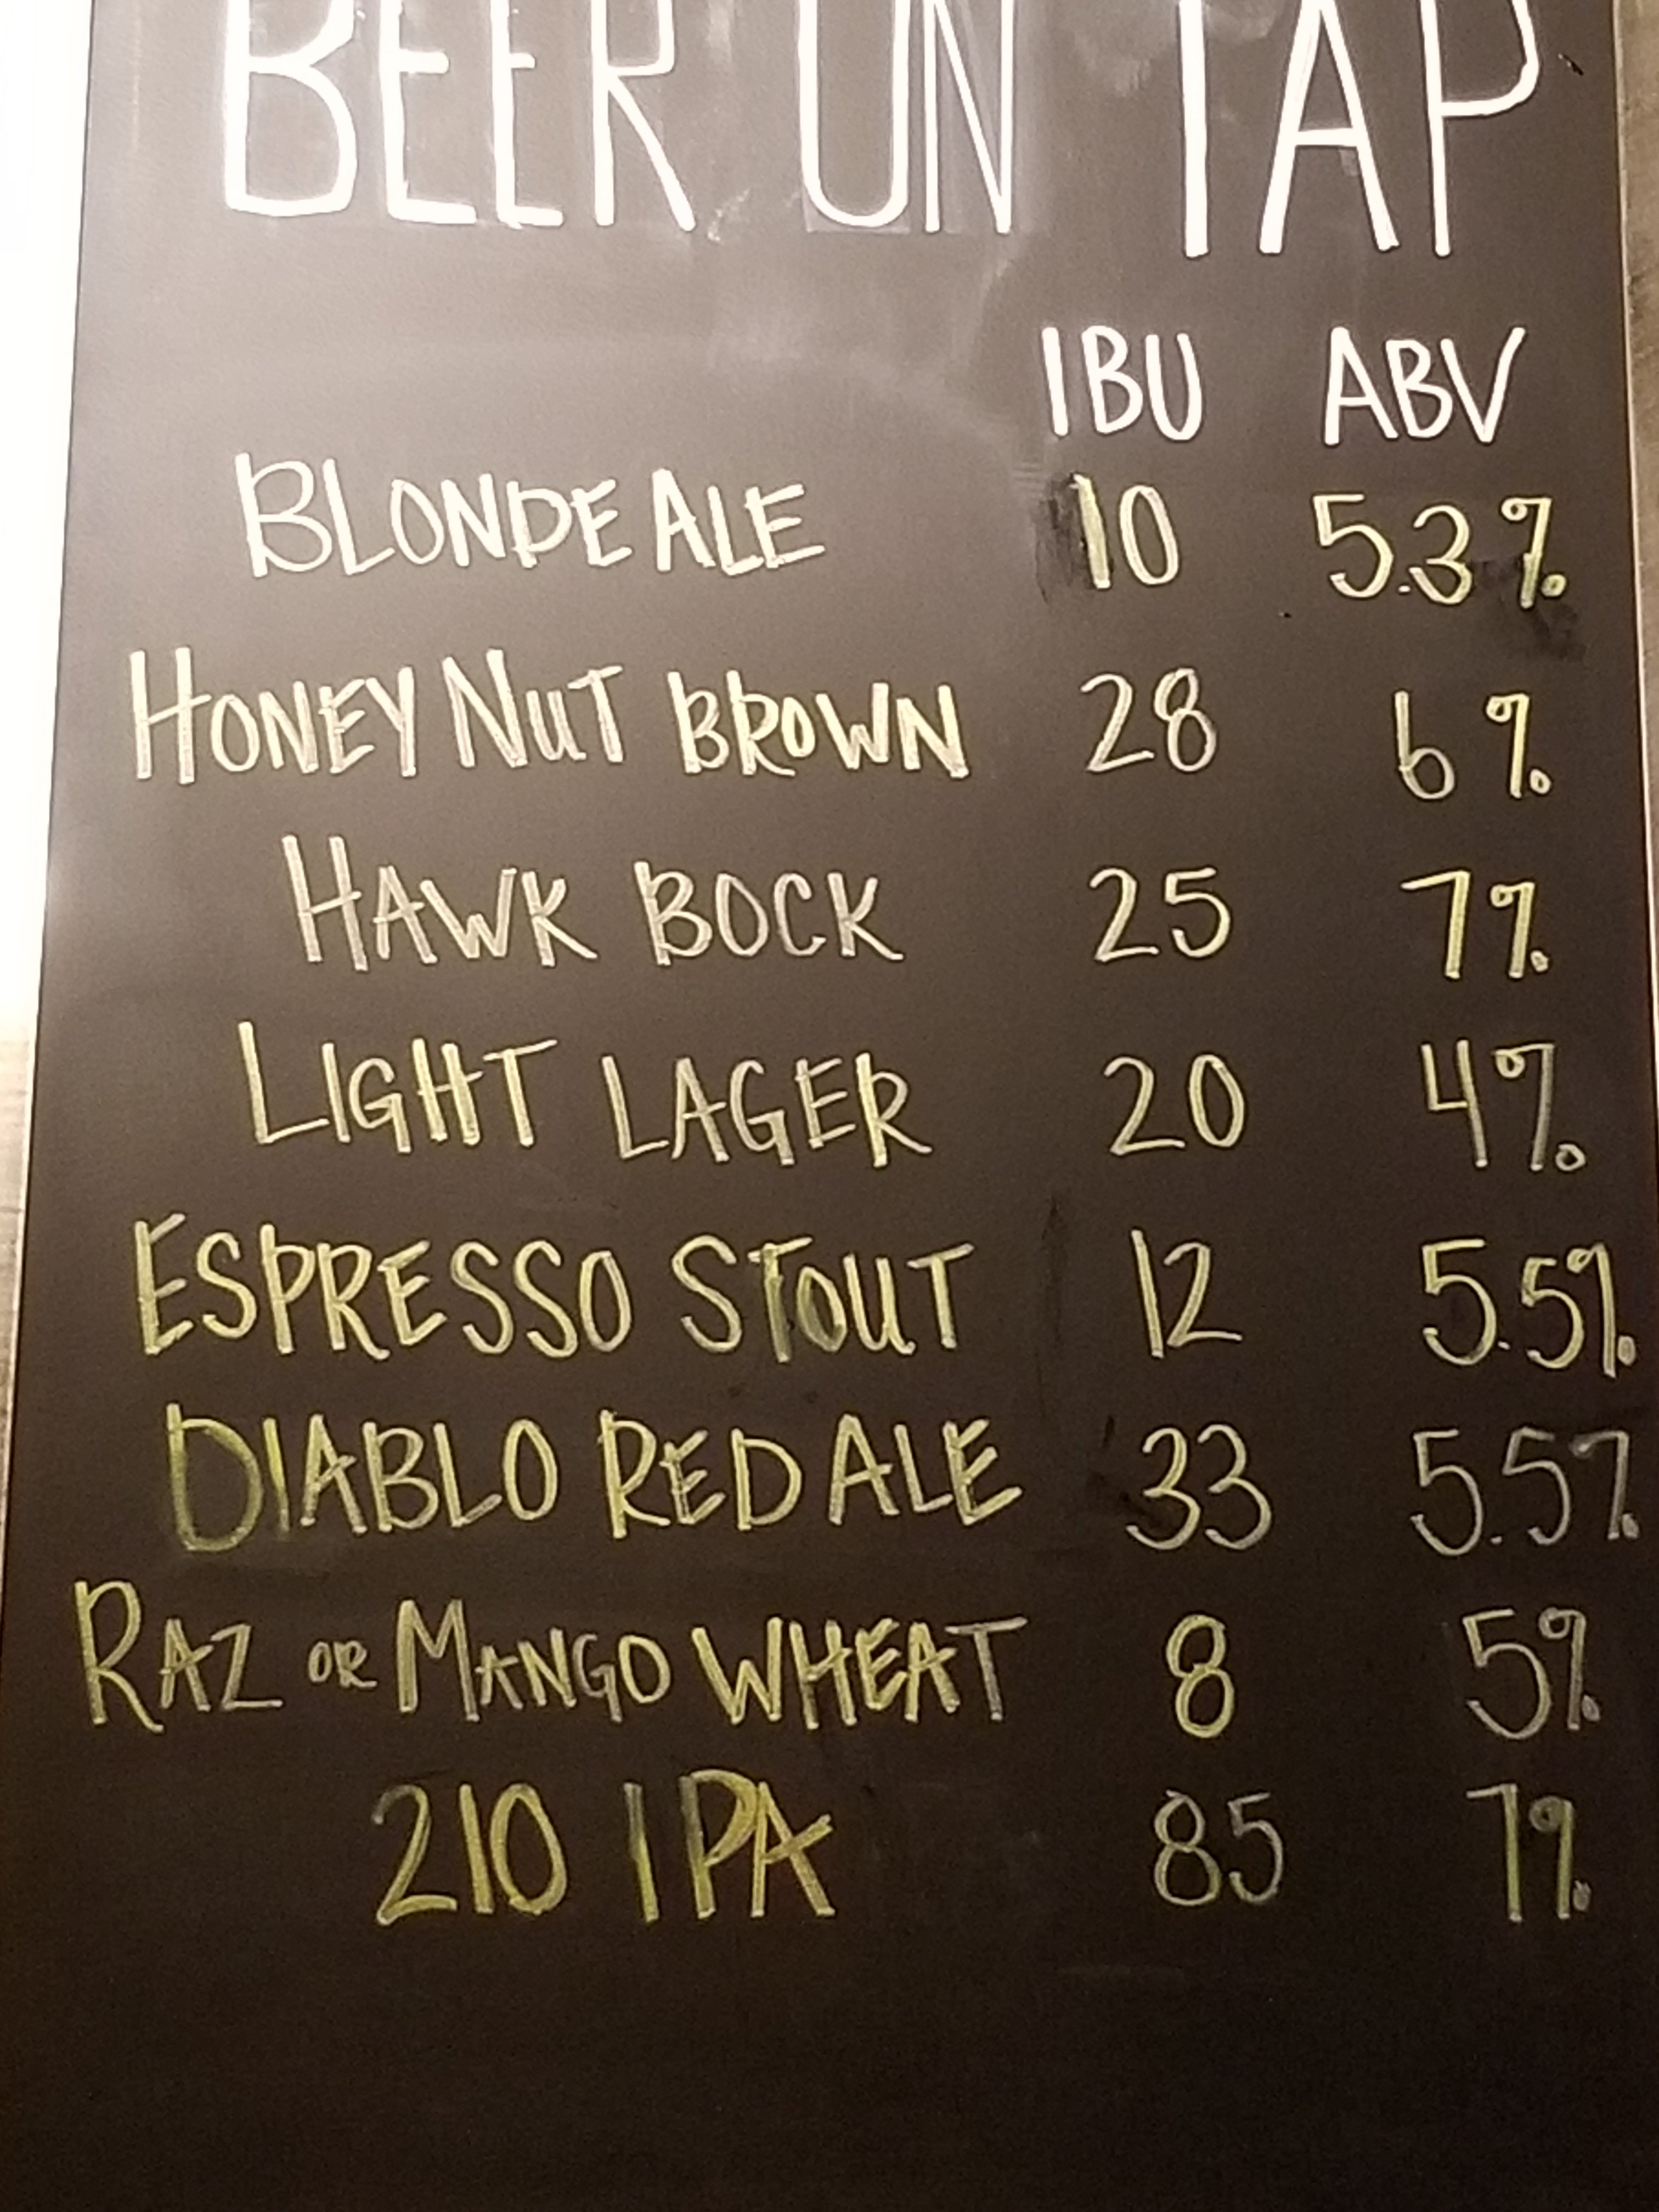 BEER ON TAP
IBU ABV
BLONDE ALE 10 5.3%
HONEY NUT BROWN 28 6%
HAWK BOCK 25 7%
LIGHT LAGER 20 4%
ESPRESSO STOUT 12 5.5%
DIABLO RED ALE 33 5.5%
RAZ OR MANGO WHEAT 8 5%
210 IPA 85 7%